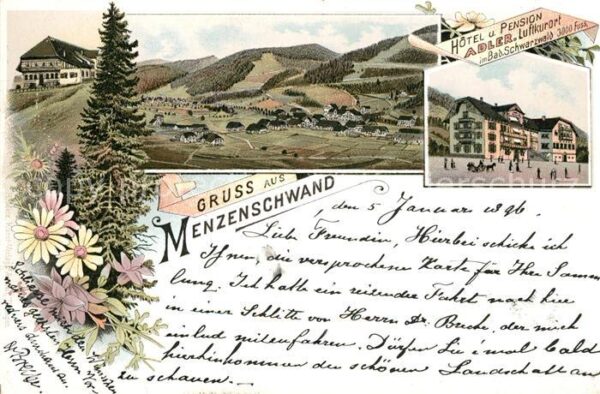 HÔTEL u. PENSION
ADLER. Luftkurort
im Bad. Schwarzwald 3000 Fuss.
GRUSS AUS
MENZENSCHWAND
den 5 Januar 1896.
Liebe Freundin, Hierbei schicke ich
Ihnen, die versprochene Karte für Ihre Samm
lung. Ich hatte ein reitender Fahrt nach hier
in einer Schlitte von Herrn Dr. der mich
einlud mitenfahren. Dürfen Sie i'mal bald
hierhinkommen die schönen Landschaft an
zu schauen.